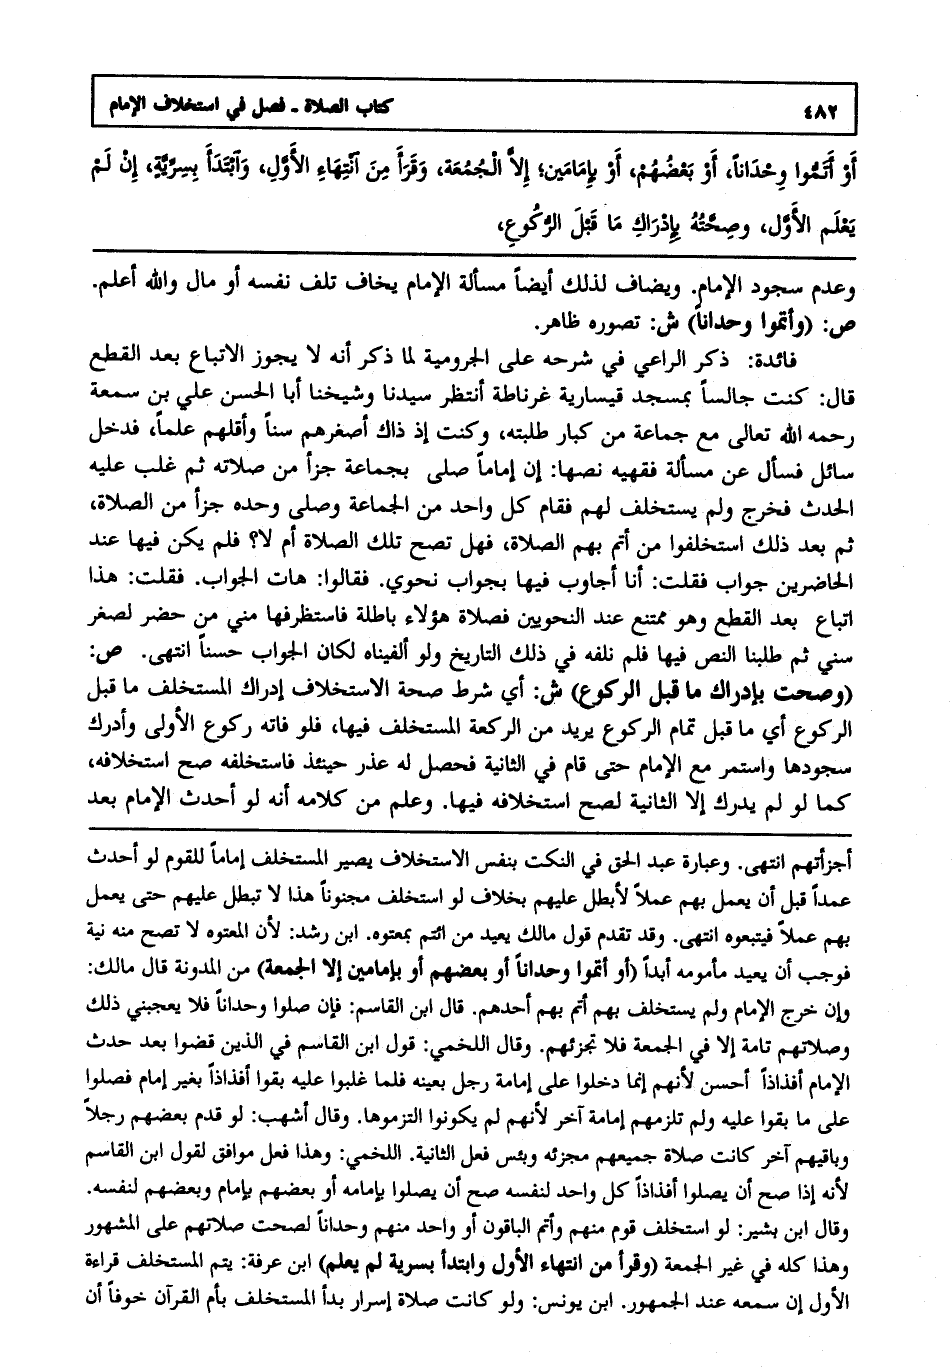 ٤٨٢ كتاب الصلاة ـ فصل في استخلاف الإمام
أَوْ أَتَمُّوا وِحْدَاناً، أَوْ بَعْضُهُمْ، أَوْ بِإِمَامَينِ؛ إِلاَّ الْجُمُعَةَ، وَقَرَأَ مِنَ ٱنْتِهَاءِ الأَوَّلِ، وَٱبْتَدَأَ بِسِرِّيَّةٍ، إِنْ لَمْ
يَعْلَمِ الأَوَّل، وصِحَّتُهُ بِإِدْرَاكِ مَا قَبْلَ الرُّكُوعِ،
وعدم سجود الإمام. ويضاف لذلك أيضاً مسألة الإمام يخاف تلف نفسه أو مال والله أعلم.
ص: (وأتموا وحداناً) ش: تصوره ظاهر.
فائدة: ذكر الراعي في شرحه على الجرومية لما ذكر أنه لا يجوز الاتباع بعد القطع
قال: كنت جالساً بمسجد قيسارية غرناطة أنتظر سيدنا وشيخنا أبا الحسن علي بن سمعة
رحمه الله تعالى مع جماعة من كبار طلبته، وكنت إذ ذاك أصغرهم سناً وأقلهم علماً، فدخل
سائل فسأل عن مسألة فقهيه نصها: إن إماماً صلى بجماعة جزأ من صلاته ثم غلب عليه
الحدث فخرج ولم يستخلف لهم فقام كل واحد من الجماعة وصلى وحده جزأ من الصلاة،
ثم بعد ذلك استخلفوا من أتم بهم الصلاة، فهل تصح تلك الصلاة أم لا؟ فلم يكن فيها عند
الحاضرين جواب فقلت: أنا أجاوب فيها بجواب نحوي. فقالوا: هات الجواب. فقلت: هذا
اتباع بعد القطع وهو ممتنع عند النحويين فصلاة هؤلاء باطلة فاستظرفها مني من حضر لصغر
سني ثم طلبنا النص فيها فلم نلفه في ذلك التاريخ ولو ألفيناه لكان الجواب حسناً انتهى. ص:
(وصحت بإدراك ما قبل الركوع) ش: أي شرط صحة الاستخلاف إدراك المستخلف ما قبل
الركوع أي ما قبل تمام الركوع يريد من الركعة المستخلف فيها، فلو فاته ركوع الأولى وأدرك
سجودها واستمر مع الإمام حتى قام في الثانية فحصل له عذر حينئذ فاستخلفه صح استخلافه،
كما لو لم يدرك إلا الثانية لصح استخلافه فيها. وعلم من كلامه أنه لو أحدث الإمام بعد
أجزأتهم انتهى. وعبارة عبد الحق في النكت بنفس الاستخلاف يصير المستخلف إماماً للقوم لو أحدث
عمداً قبل أن يعمل بهم عملاً لأبطل عليهم بخلاف لو استخلف مجنوناً هذا لا تبطل عليهم حتى يعمل
بهم عملاً فيتبعوه انتهى. وقد تقدم قول مالك يعيد من ائتم بمعتوه. ابن رشد: لأن المعتوه لا تصح منه نية
فوجب أن يعيد مأمومه أبداً (أو أتموا وحداناً أو بعضهم أو بإمامين إلا الجمعة) من المدونة قال مالك:
وإن خرج الإمام ولم يستخلف بهم أتم بهم أحدهم. قال ابن القاسم: فإن صلوا وحداناً فلا يعجبني ذلك
وصلاتهم تامة إلا في الجمعة فلا تجزئهم. وقال اللخمي: قول ابن القاسم في الذين قضوا بعد حدث
الإمام أفذاذاً أحسن لأنهم إنما دخلوا على إمامة رجل بعينه فلما غلبوا عليه بقوا أفذاذاً بغير إمام فصلوا
على ما بقوا عليه ولم تلزمهم إمامة آخر لأنهم لم يكونوا التزموها. وقال أشهب: لو قدم بعضهم رجلاً
وباقيهم آخر كانت صلاة جميعهم مجزئه وبئس فعل الثانية. اللخمي: وهذا فعل موافق لقول ابن القاسم
لأنه إذا صح أن يصلوا أفذاذاً كل واحد لنفسه صح أن يصلوا بإمامه أو بعضهم بإمام وبعضهم لنفسه.
وقال ابن بشير: لو استخلف قوم منهم وأتم الباقون أو واحد منهم وحداناً لصحت صلاتهم على المشهور
وهذا كله في غير الجمعة (وقرأ من انتهاء الأول وابتدأ بسرية لم يعلم) ابن عرفة: يتم المستخلف قراءة
الأول إن سمعه عند الجمهور. ابن يونس: ولو كانت صلاة إسرار بدأ المستخلف بأم القرآن خوفاً أن